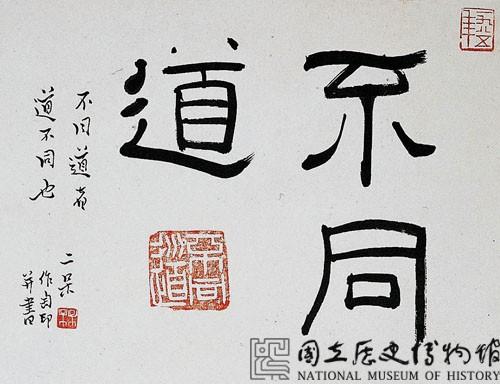 不同
道
不同道者
道不同也
二呆
作句印
并書
不同道
國立歷史博物館
NATIONAL MUSEUM OF HISTORY